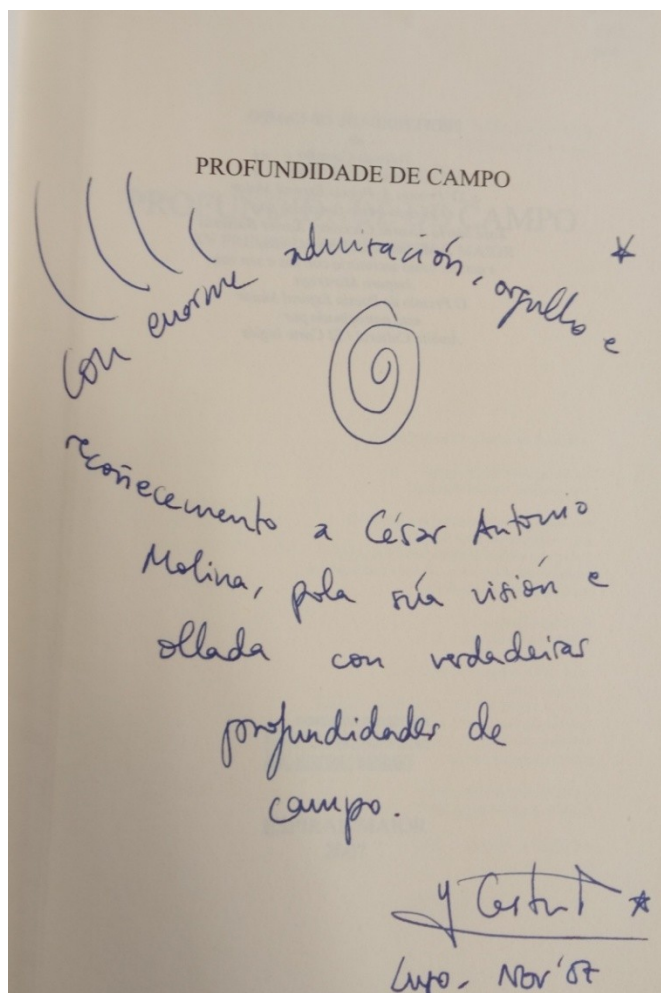 PROFUNDIDADE DE CAMPO
Con enorme admiración, orgullo e
recoñecemento a César Antonio
Molina, pola súa visión e
ollada con verdadeiras
profundidades de
campo.
Lugo - Nov'07